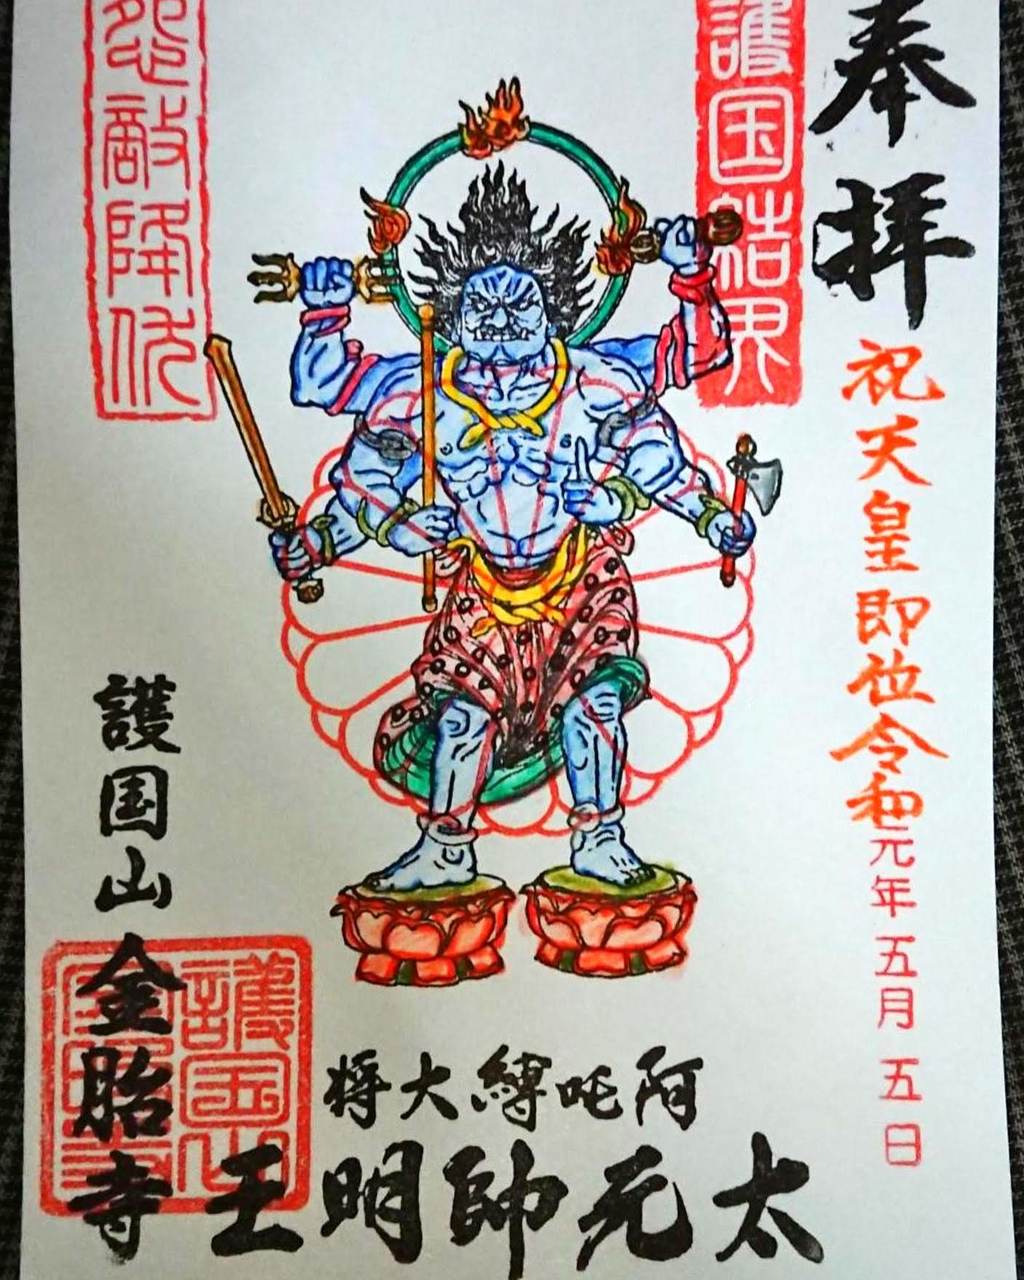 奉拝
祝天皇即位令和元年五月五日
護国結界
怨敵降伏
阿吒縛大将
太元帥明王
護国山金胎寺
護国山